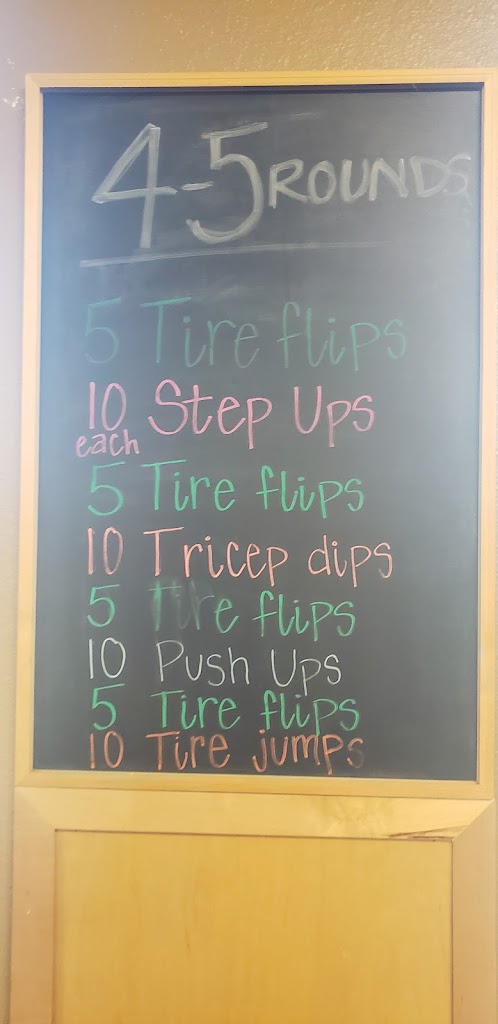 4-5 ROUNDS
5 Tire flips
10 Step Ups
each
5 Tire flips
10 Tricep dips
5 Tire flips
10 Push Ups
5 Tire flips
10 Tire jumps